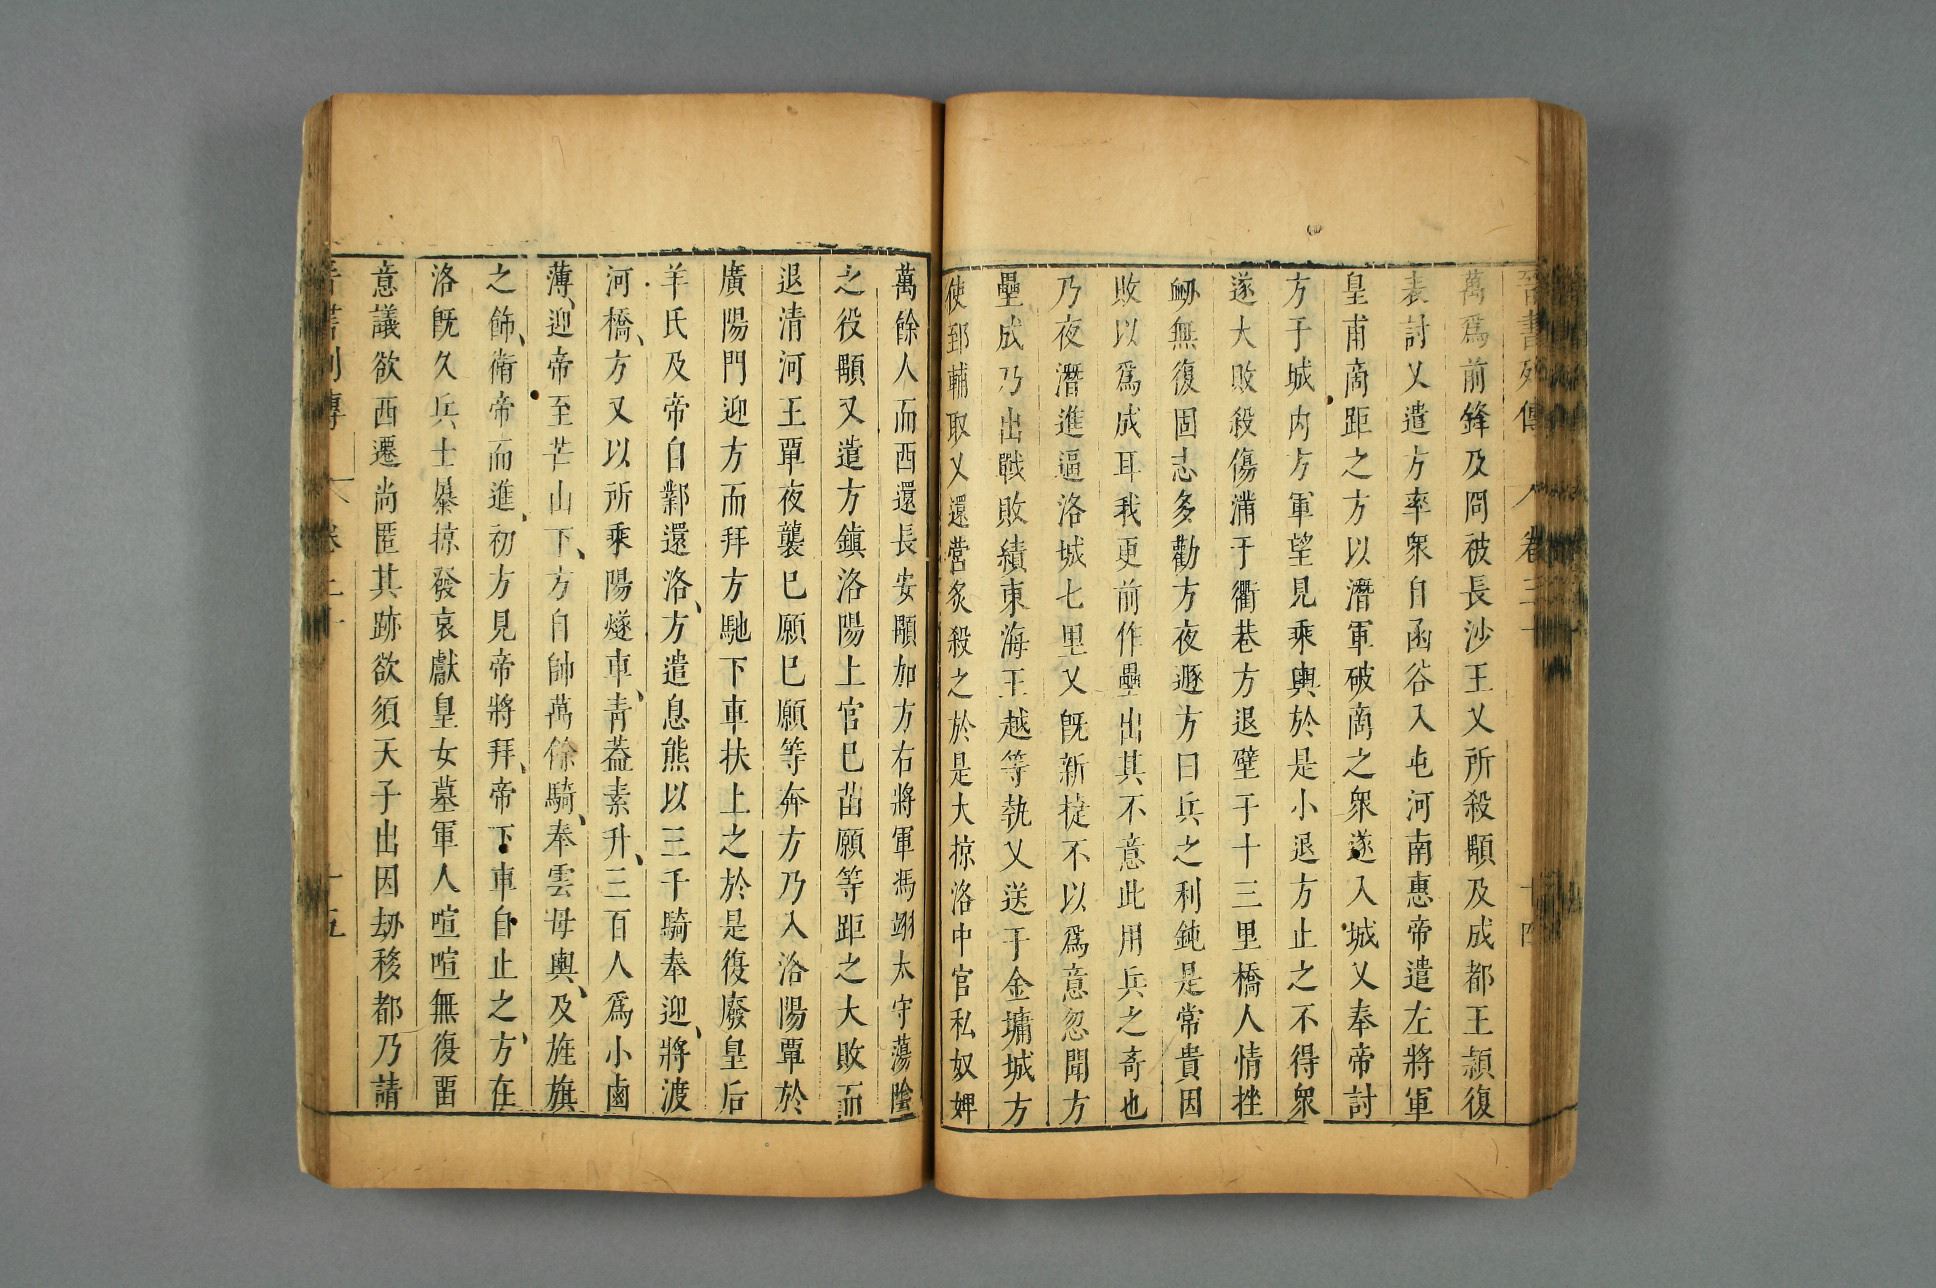 晉書列傳 卷三十 十四
萬爲前鋒及冏被長沙王乂所殺顒及成都王頴復
表討乂遣方率衆自函谷入屯河南惠帝遣左將軍
皇甫啇距之方以潛軍破啇之衆遂入城乂奉帝討
方于城内方軍望見乘輿於是小退方止之不得衆
遂大敗殺傷滿于衢巷方退壁于十三里橋人情挫
衂無復固志多勸方夜遯方曰兵之利鈍是常貴因
敗以爲成耳我更前作壘出其不意此用兵之奇也
乃夜潛進逼洛城七里乂旣新捷不以爲意忽聞方
壘成乃出戰敗績東海王越等執乂送于金墉城方
使郅輔取乂還營炙殺之於是大掠洛中官私奴婢
萬餘人而西還長安顒加方右將軍馮翊太守蕩陰
之役顒又遣方鎮洛陽上官巳苗願等距之大敗而
退清河王覃夜襲巳願巳願等奔方乃入洛陽覃於
廣陽門迎方而拜方馳下車扶上之於是復廢皇后
羊氏及帝自鄴還洛方遣息熊以三千騎奉迎將渡
河橋方又以所乘陽燧車青葢素升三百人爲小鹵
薄迎帝至芒山下方自帥萬餘騎奉雲母輿及旌旗
之飾衛帝而進初方見帝將拜帝下車自止之方在
洛旣久兵士暴掠發哀獻皇女墓軍人喧喧無復畱
意議欲西遷尚匿其跡欲須天子出因劫移都乃請
晉書列傳 卷三十 十五